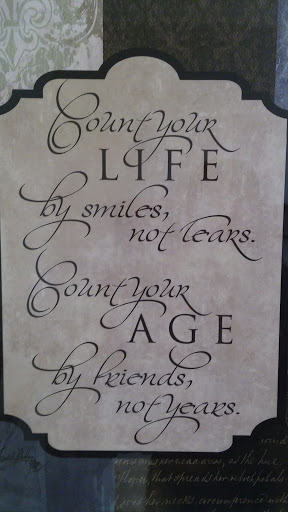 Count your
LIFE
by smiles,
not tears.
Count your
AGE
by friends,
not years.